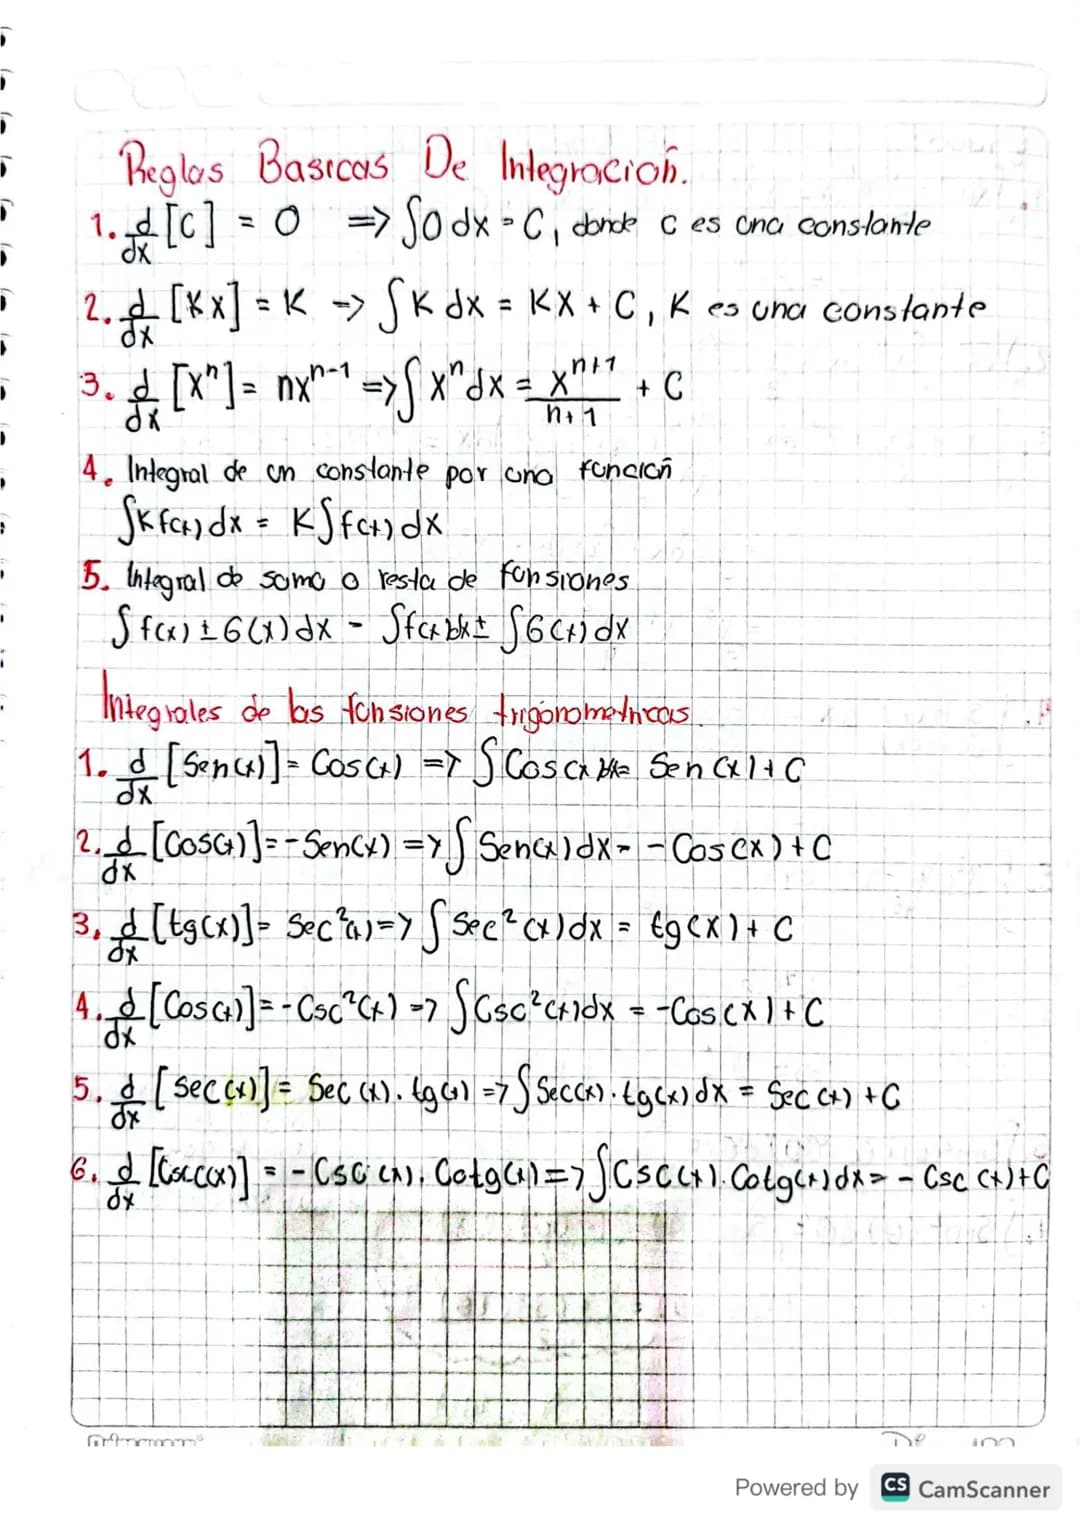 Reglas Basicas De Integración.
1. d/dx [c] = 0 => ∫0 dx = C, donde c es una constante
2. d/dx [Kx] = K => ∫K dx = KX + C, K es una constante
3. d/dx [xⁿ] = nxⁿ⁻¹ => ∫xⁿdx = xⁿ⁺¹/n+1 + C
4. Integral de un constante por una función
∫K f(x) dx = K∫f(x) dx
5. Integral de suma o resta de funsiones
∫f(x) ± G(x) dx = ∫f(x)dx ± ∫G(x) dx
Integrales de las funsiones trigonometricas.
1. d/dx [Sen(x)] = Cos(x) => ∫Cos(x)dx = Sen(x) + C
2. d/dx [Cos(x)] = -Sen(x) => ∫Sen(x)dx = -Cos(x) + C
3. d/dx [tg(x)] = Sec²(x) => ∫Sec²(x)dx = tg(x) + C
4. d/dx [Cos(x)] = -Csc²(x) => ∫Csc²(x)dx = -Cos(x) + C
5. d/dx [Sec(x)] = Sec(x). tg(x) => ∫Sec(x). tg(x)dx = Sec(x) + C
6. d/dx [Csc(x)] = -Csc(x). Cotg(x) => ∫Csc(x). Cotg(x)dx = -Csc(x) + C
Powered by CS CamScanner